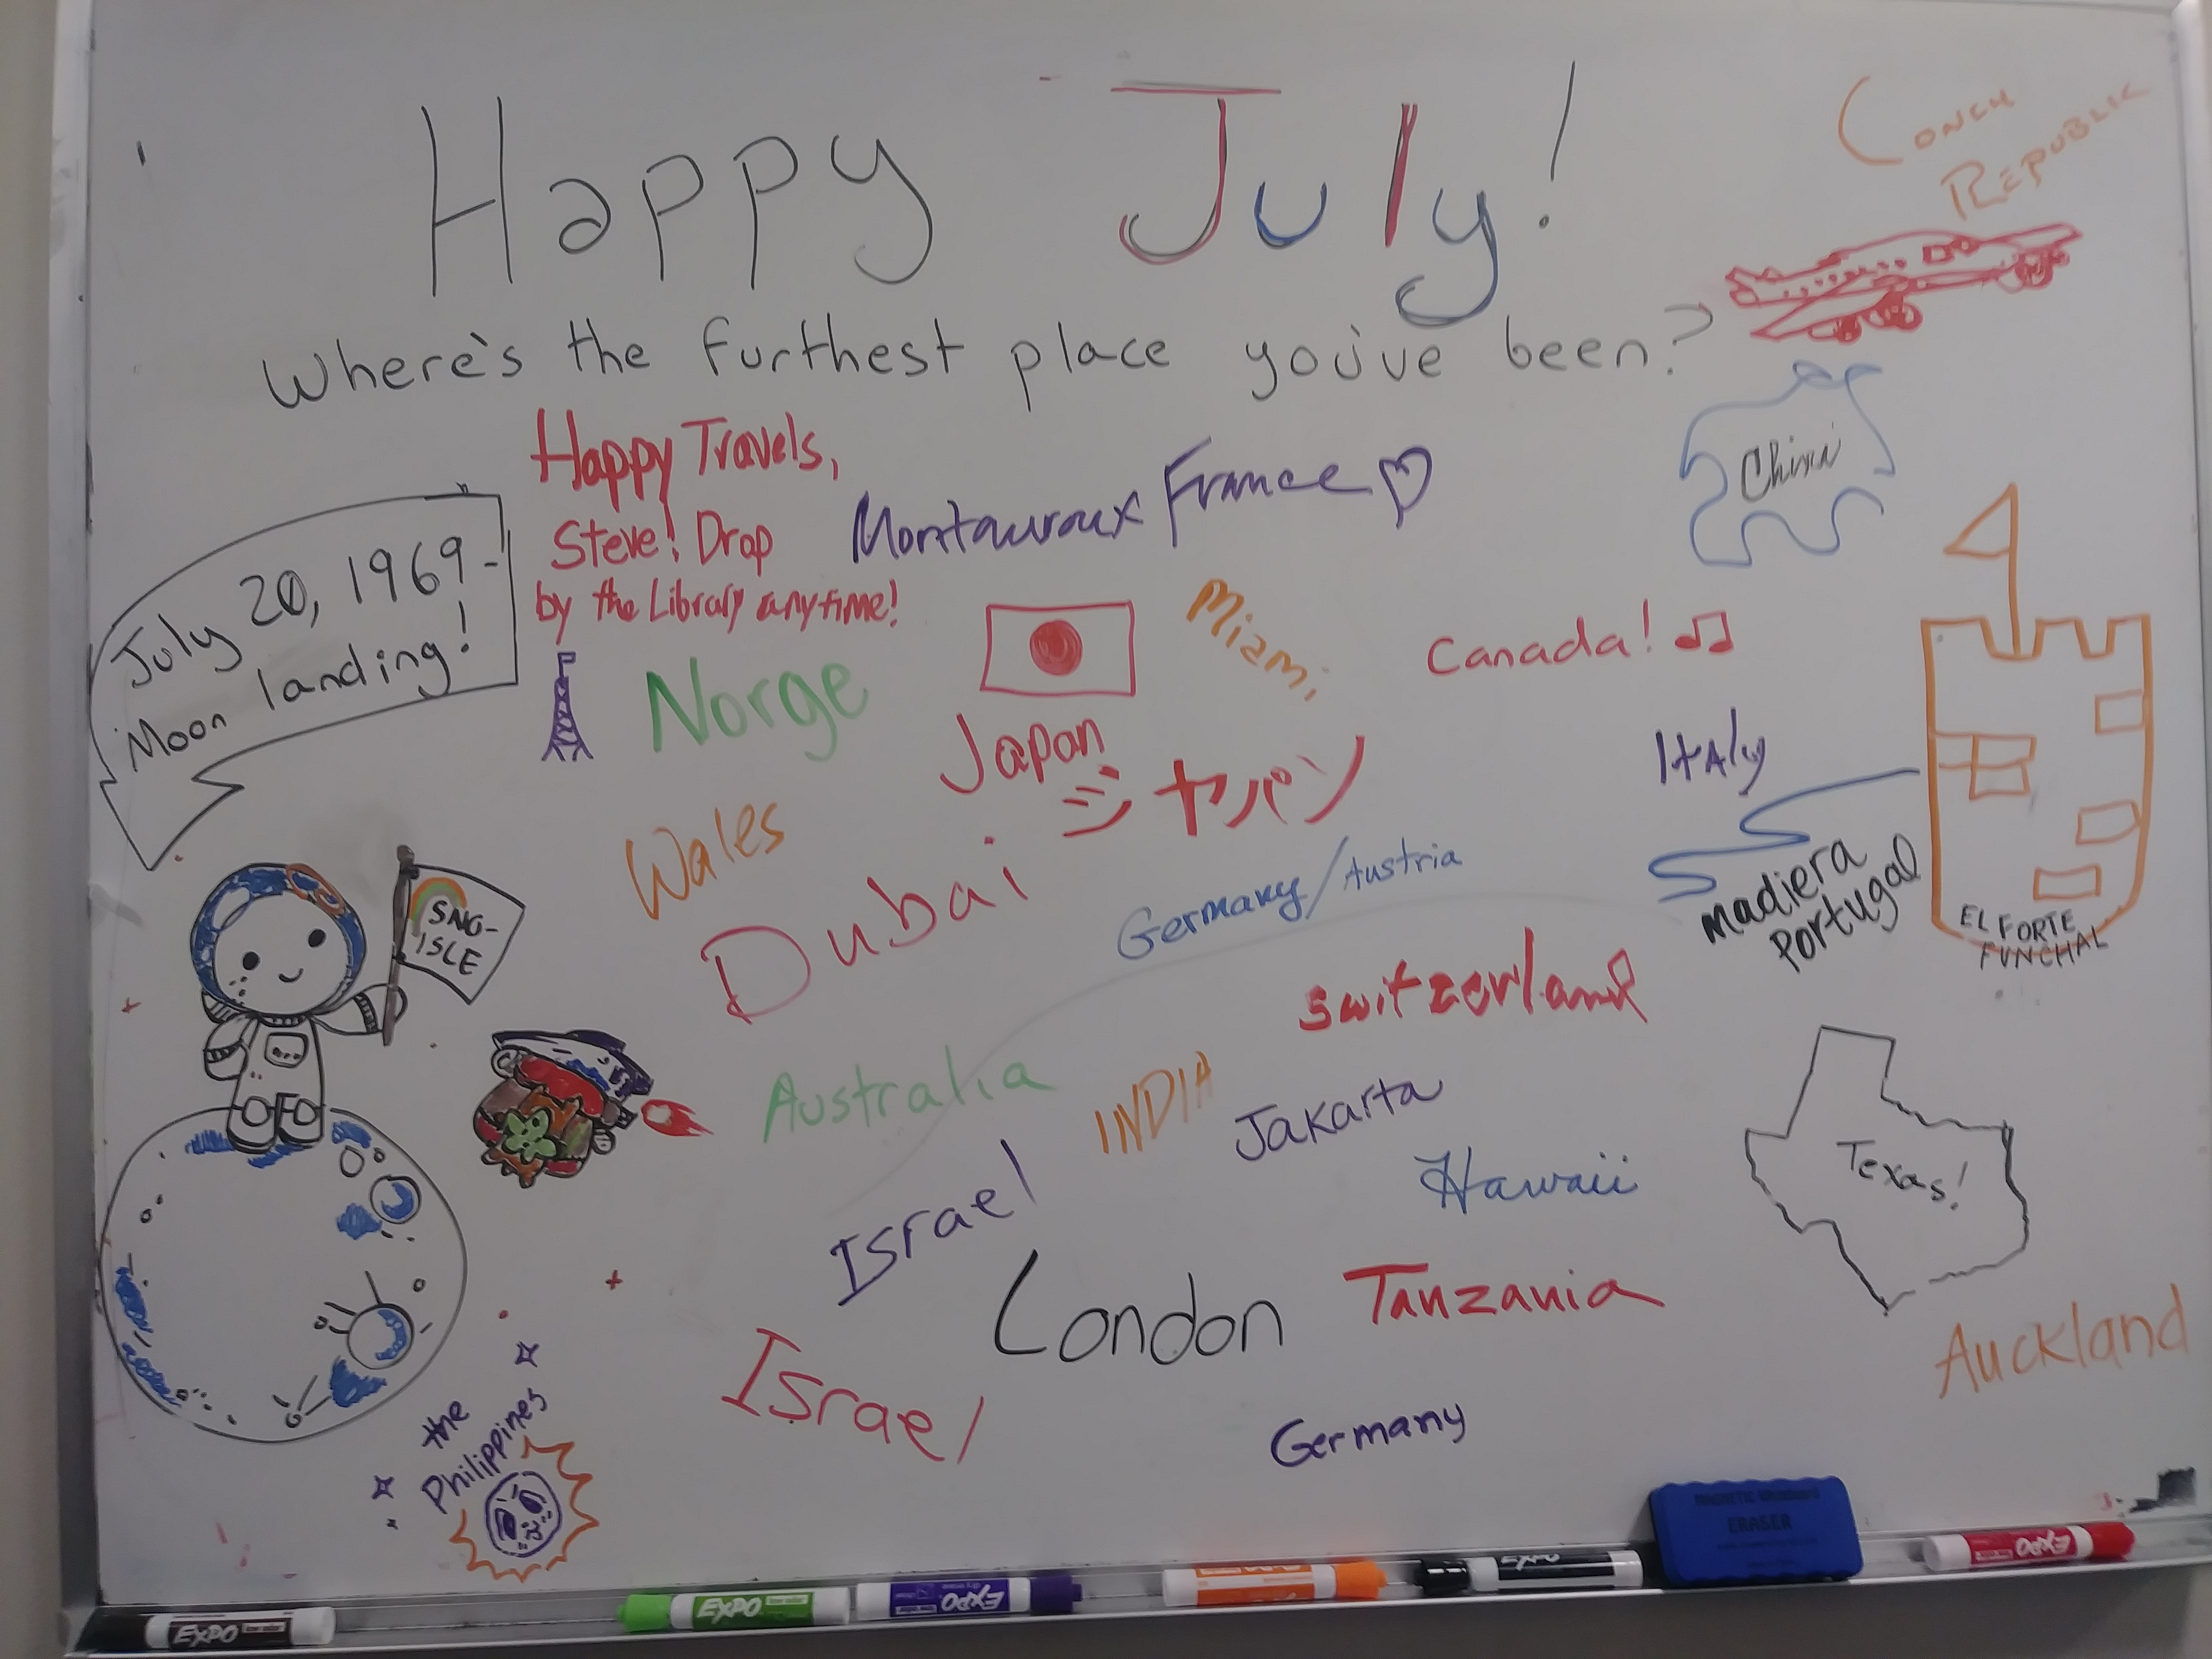 Happy July!
Where's the furthest place you've been?
CONCH
REPUBLIC
Happy Travels,
Steve! Drop
by the Library anytime!
Montauroux France
China
July 20, 1969-
Moon landing!
Norge
Japan
ジャパン
Miami
Canada!
Italy
Wales
Dubai
Germany/Austria
madiera
Portugal
EL FORTE
FUNCHAL
SNG-
ISLE
Switzerland
Australia
INDIA
Jakarta
Hawaii
Texas!
Israel
London
Tanzania
Auckland
Israel
Germany
the
Philippines
ERASER
EXPO
EXPO
EXPO
EXPO
EXPO